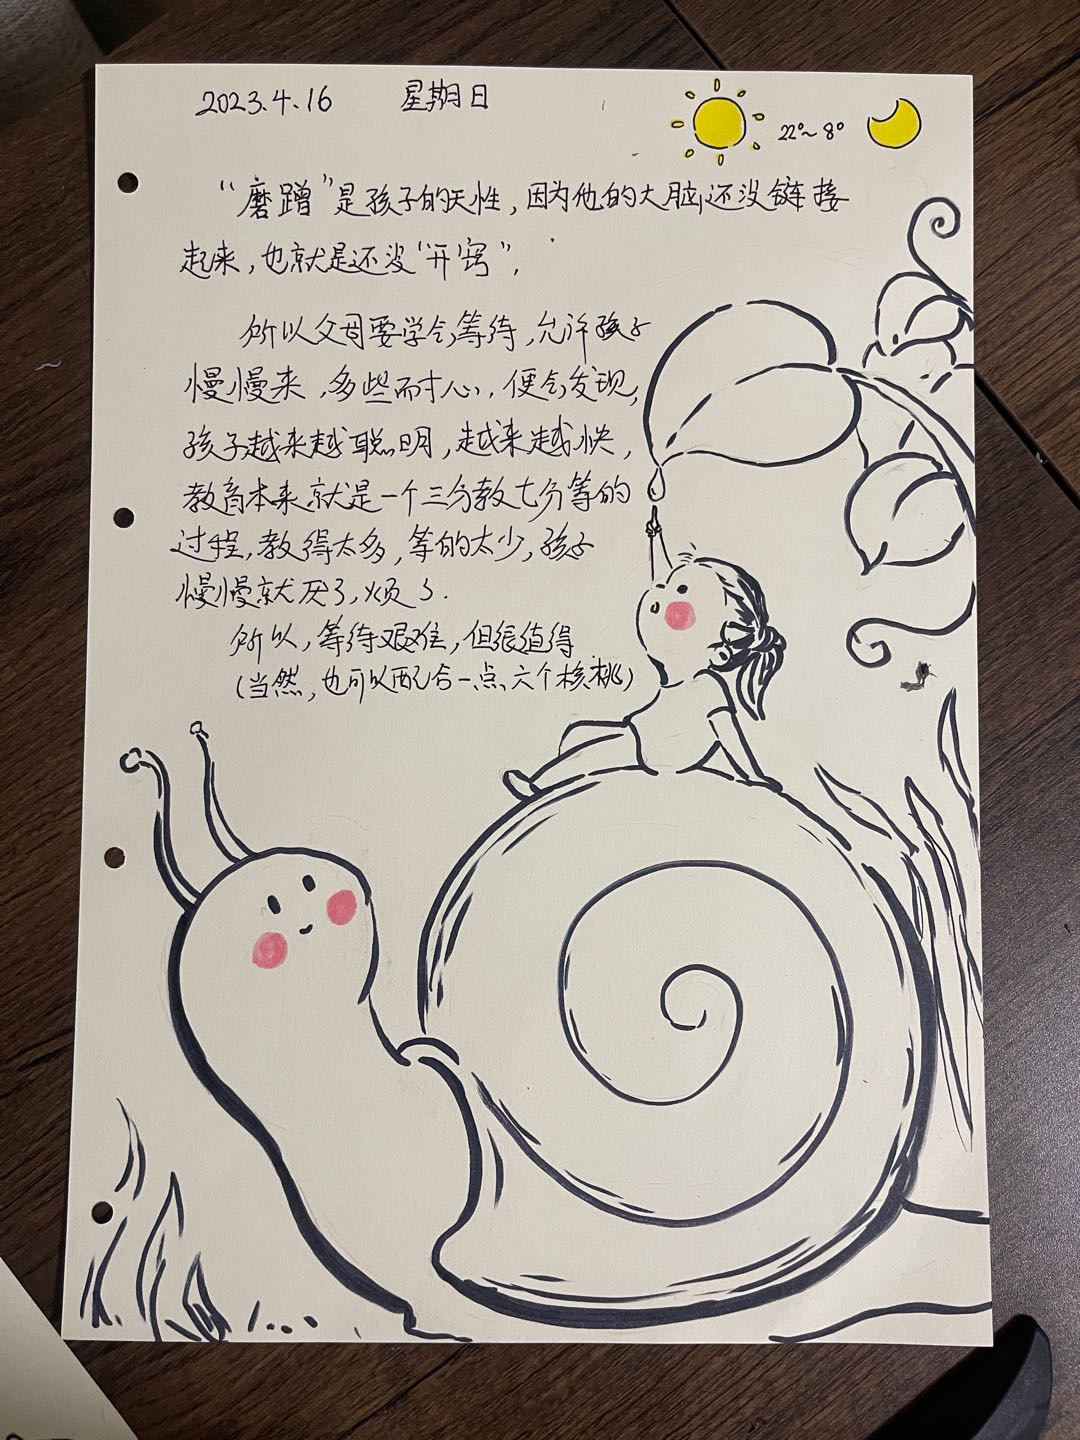 2023.4.16 星期日 22°~8°
“磨蹭”是孩子的天性，因为他的大脑还没链接
起来，也就是还没“开窍”，
所以父母要学会等待，允许孩子
慢慢来，多些耐心，便会发现，
孩子越来越聪明，越来越快，
教育本来就是一个三分教七分等的
过程，教得太多，等的太少，孩子
慢慢就厌了，烦了.
所以，等待艰难，但很值得
(当然，也可以配合一点六个核桃)